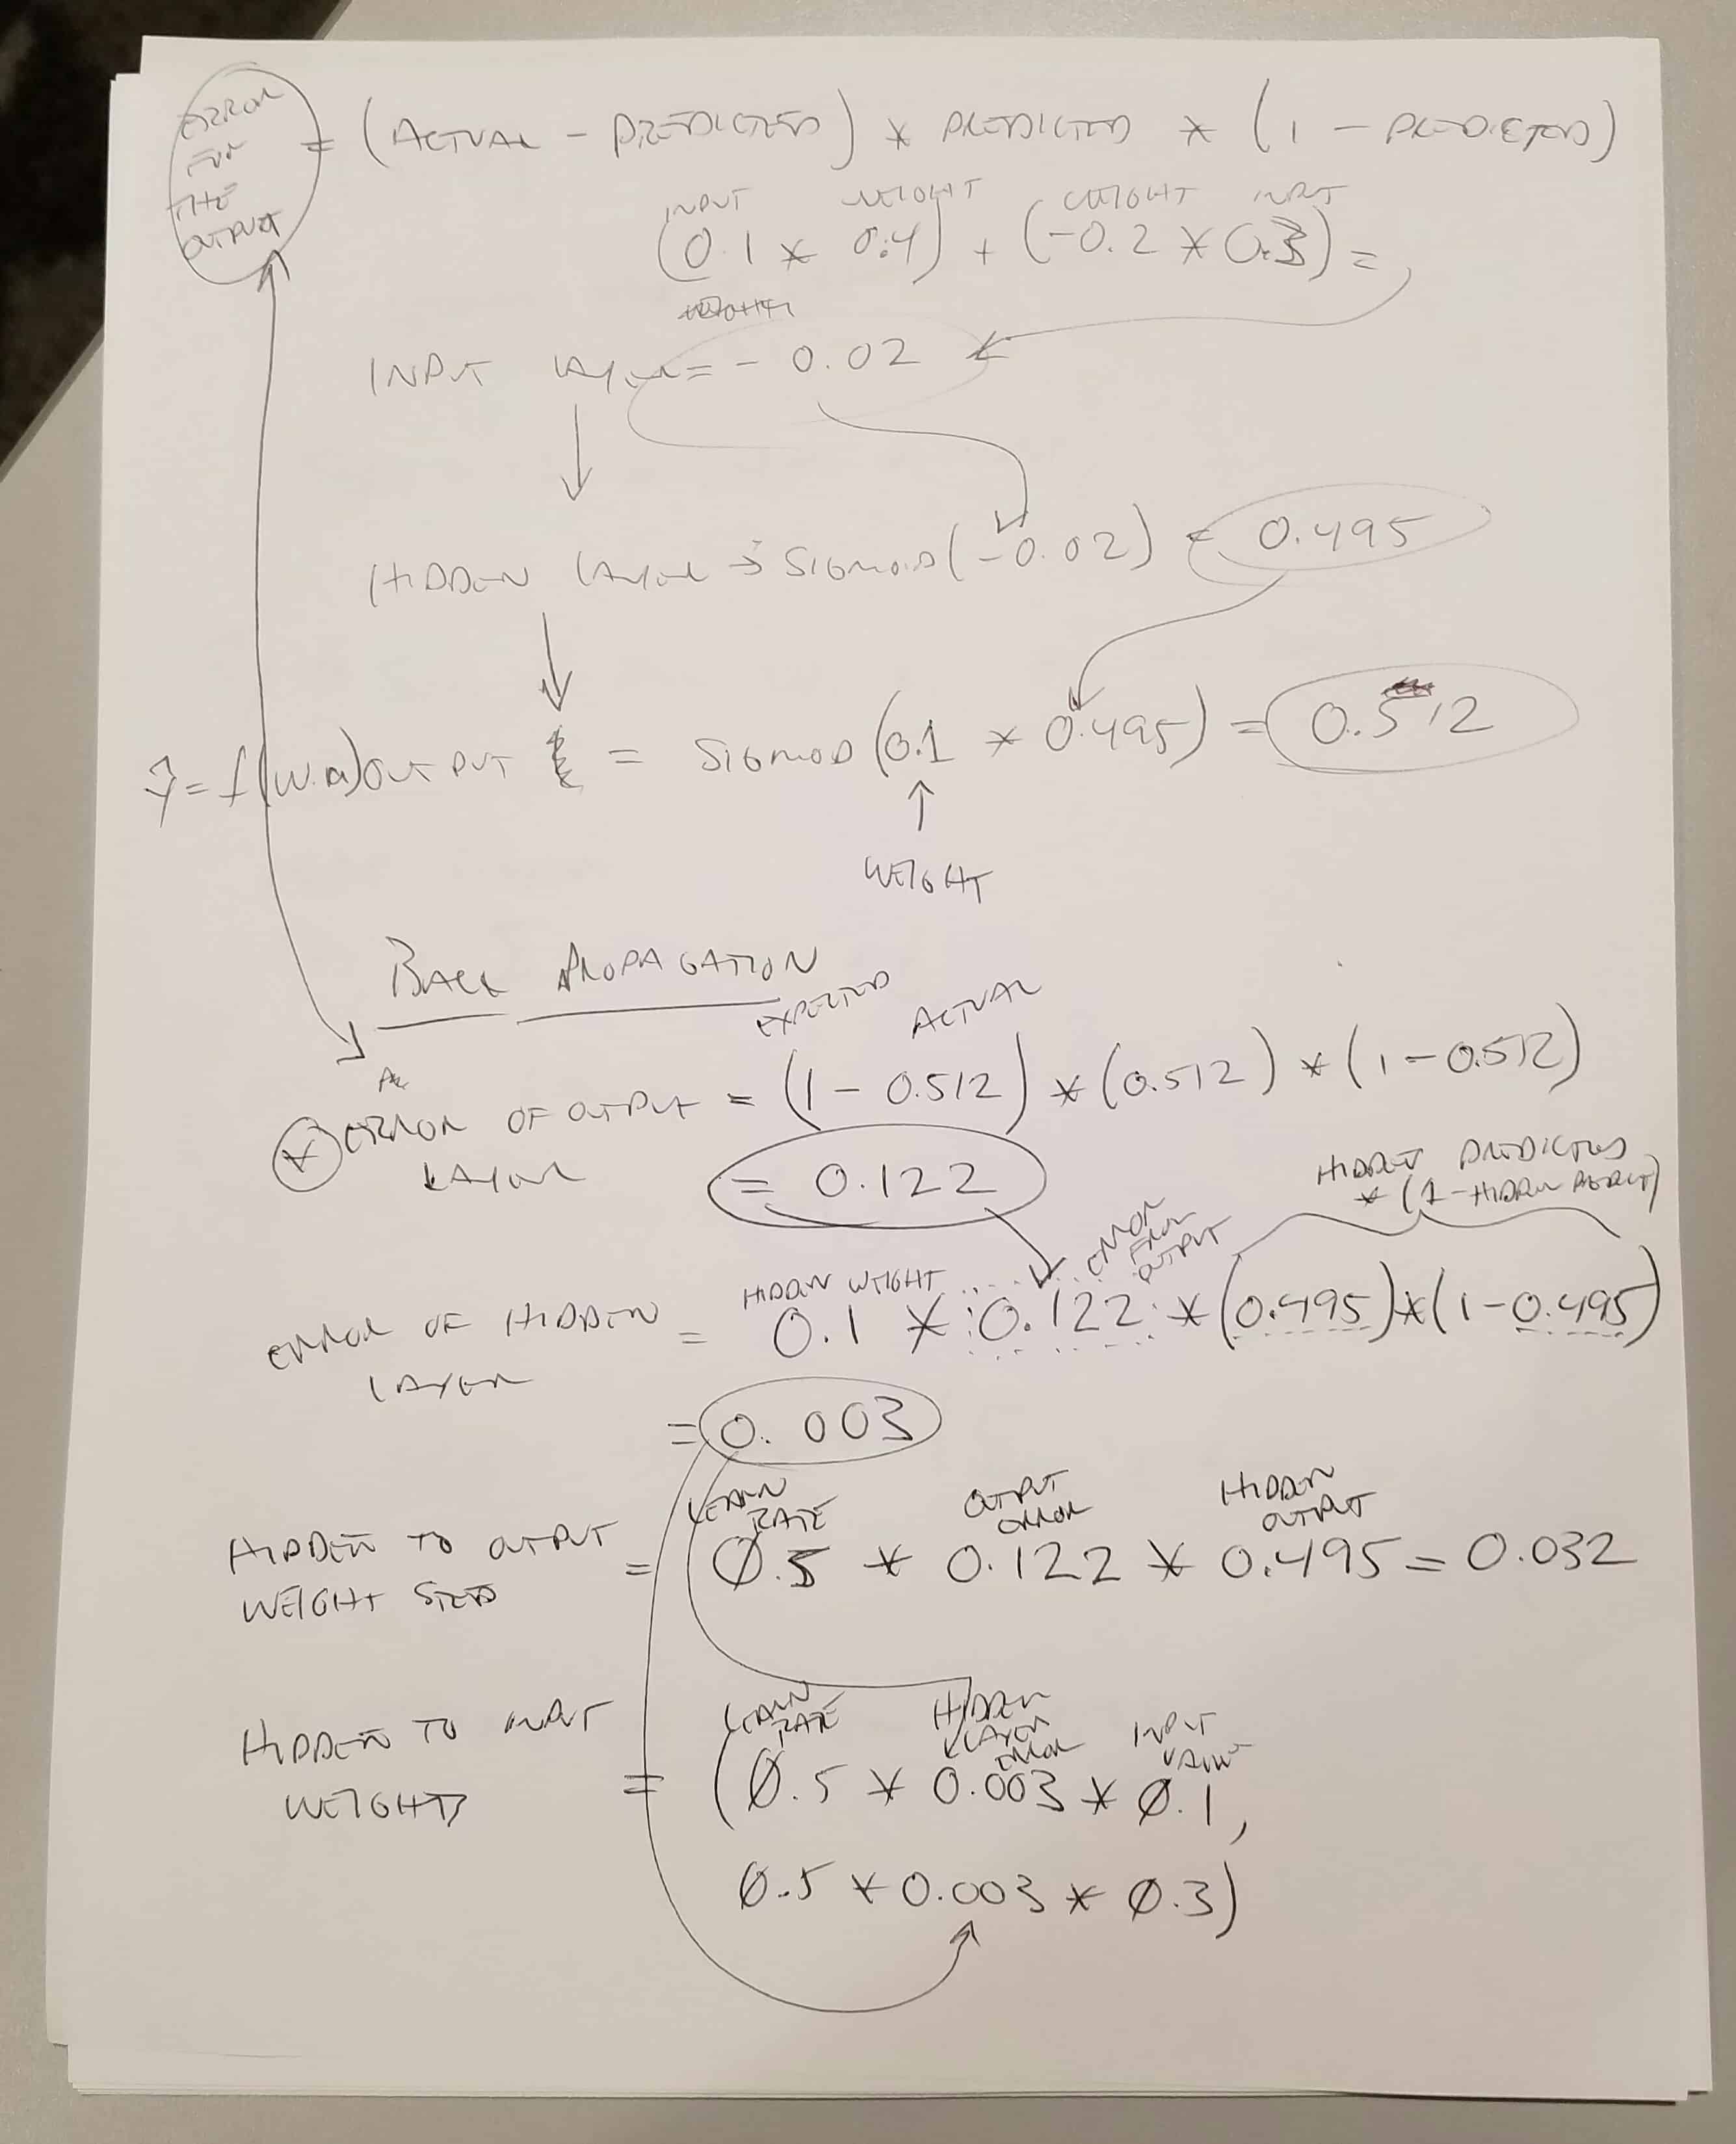 ERROR
FOR
THE
OUTPUT
= (ACTUAL - PREDICTED) * PREDICTED * (1 - PREDICTED)
INPUT WEIGHT WEIGHT INPUT
(0.1 * 0.4) + (-0.2 * 0.3) =
INPUT LAYER = - 0.02
HIDDEN LAYER → SIGMOID(-0.02) = 0.495
ŷ = f(W.a) OUTPUT = SIGMOID (0.1 * 0.495) = 0.512
WEIGHT
BACK PROPAGATION
EXPECTED ACTUAL
* ERROR OF OUTPUT = (1 - 0.512) * (0.512) * (1 - 0.512)
LAYER
= 0.122
HIDDEN PREDICTED
* (1 - HIDDEN PREDICT)
ERROR
FROM
OUTPUT
HIDDEN WEIGHT
ERROR OF HIDDEN = 0.1 * 0.122 * (0.495) * (1 - 0.495)
LAYER
= 0.003
LEARN OUTPUT HIDDEN
RATE ERROR OUTPUT
HIDDEN TO OUTPUT = 0.5 * 0.122 * 0.495 = 0.032
WEIGHT STEPS
LEARN HIDDEN INPUT
RATE LAYER VALUE
ERROR
HIDDEN TO INPUT = (0.5 * 0.003 * 0.1,
WEIGHTS
0.5 * 0.003 * 0.3)